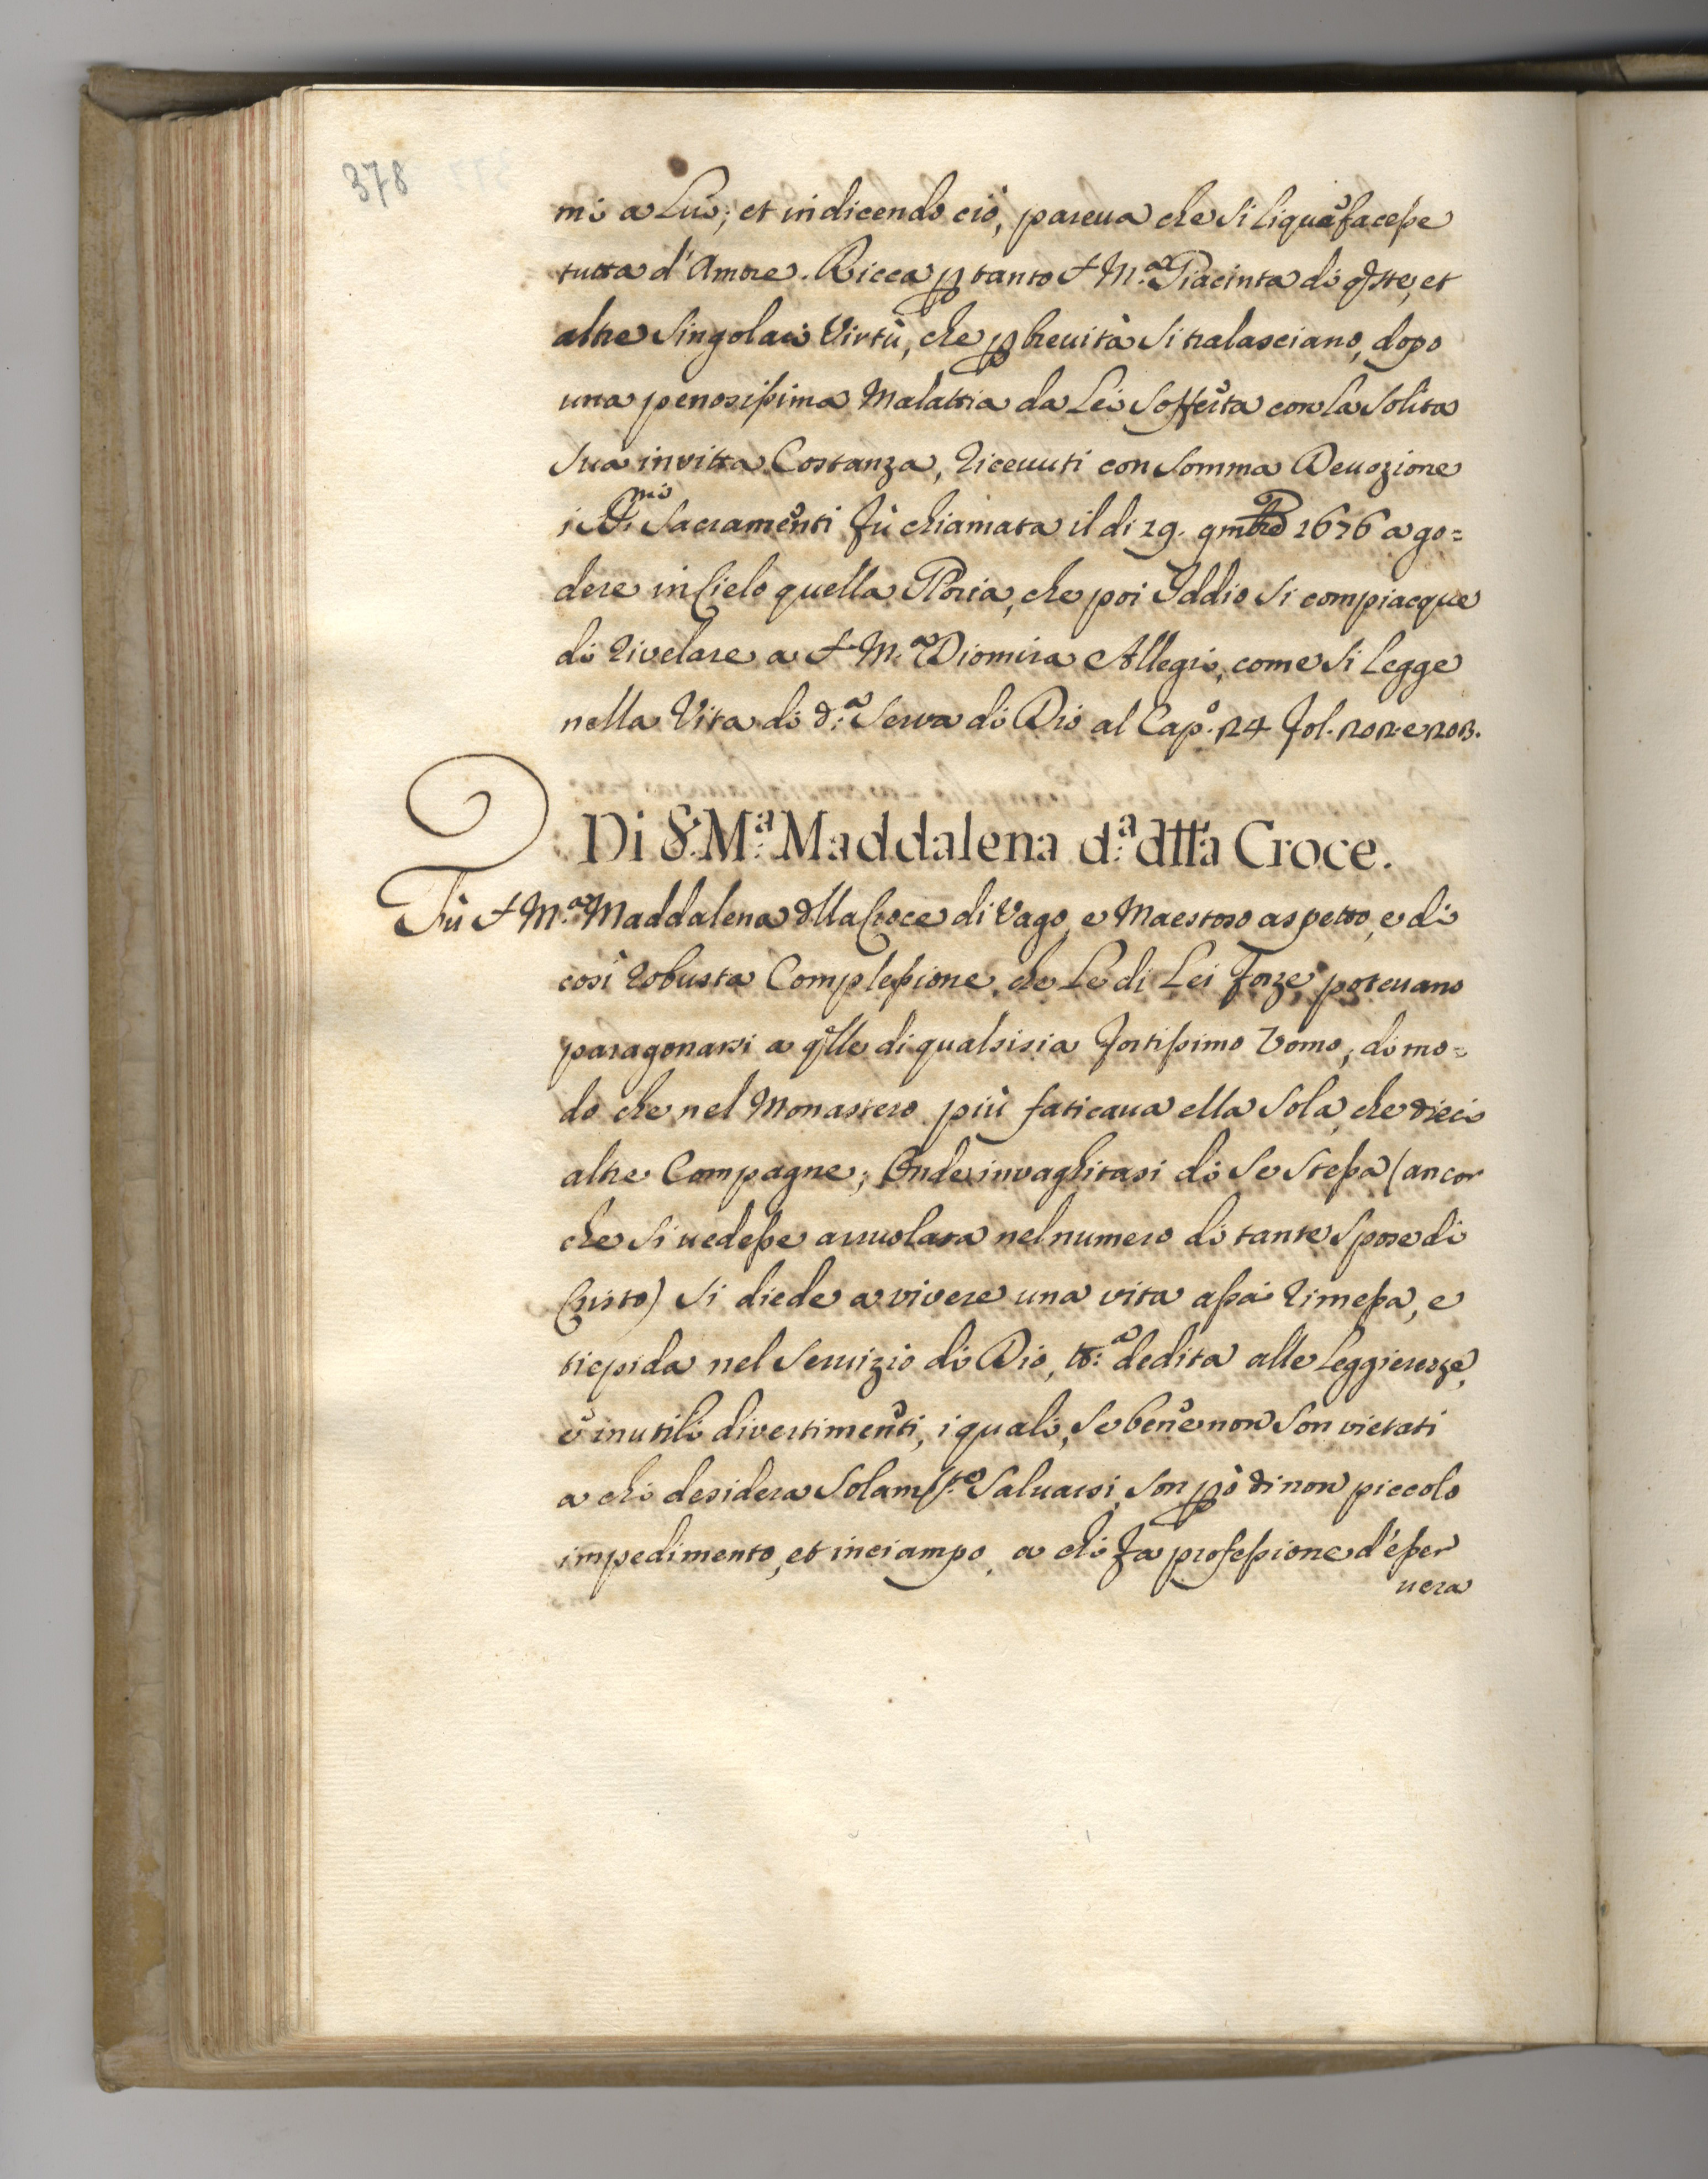 378
mi a Lui; et in dicendo ciò, pareua che si liquefacesse
tutta d'Amore. Ricca ꝑ tanto S. M.ª Giacinta di q̃ste, et
altre singolari Virtù, che ꝑ breuità si tralasciano, dopo
una penosissima Malattia da Lei sofferta con la solita
sua invitta Costanza, riceuuti con somma Deuozione
i SS.mi Sacramenti fù chiamata il di 29. 9mbre 1676 a go=
dere in Cielo quella Gloria, che poi Iddio si compiacque
di rivelare a S. M.ª Diomira Allegri, come si legge
nella Vita di d.ª Serva di Dio al Cap.º 24 fol. 202. e 203.
Di S. M.ª Maddalena d.ª dlla Croce.
Fù S. M.ª Maddalena dlla Croce di Vago, e Maestoso aspetto, e di
così robusta Complessione, che Le di Lei forze poteuano
paragonarsi a q̃lle di qualsisia fortissimo Uomo; di mo=
do che nel Monastero più faticaua ella sola, che dieci
altre Compagne; Onde invaghitasi di se stessa (ancor
che si uedesse arruolata nel numero di tante spose di
Cristo) si diede a vivere una vita assai rimessa, e
tiepida nel seruizio di Dio, tt.ª dedita alle leggierezze,
e inutili divertimenti, i quali, se bene non son vietati
a chi desidera solamte saluarsi, son ꝑò di non piccolo
impedimento, et inciampo, a chi fa professione d'esser
uera